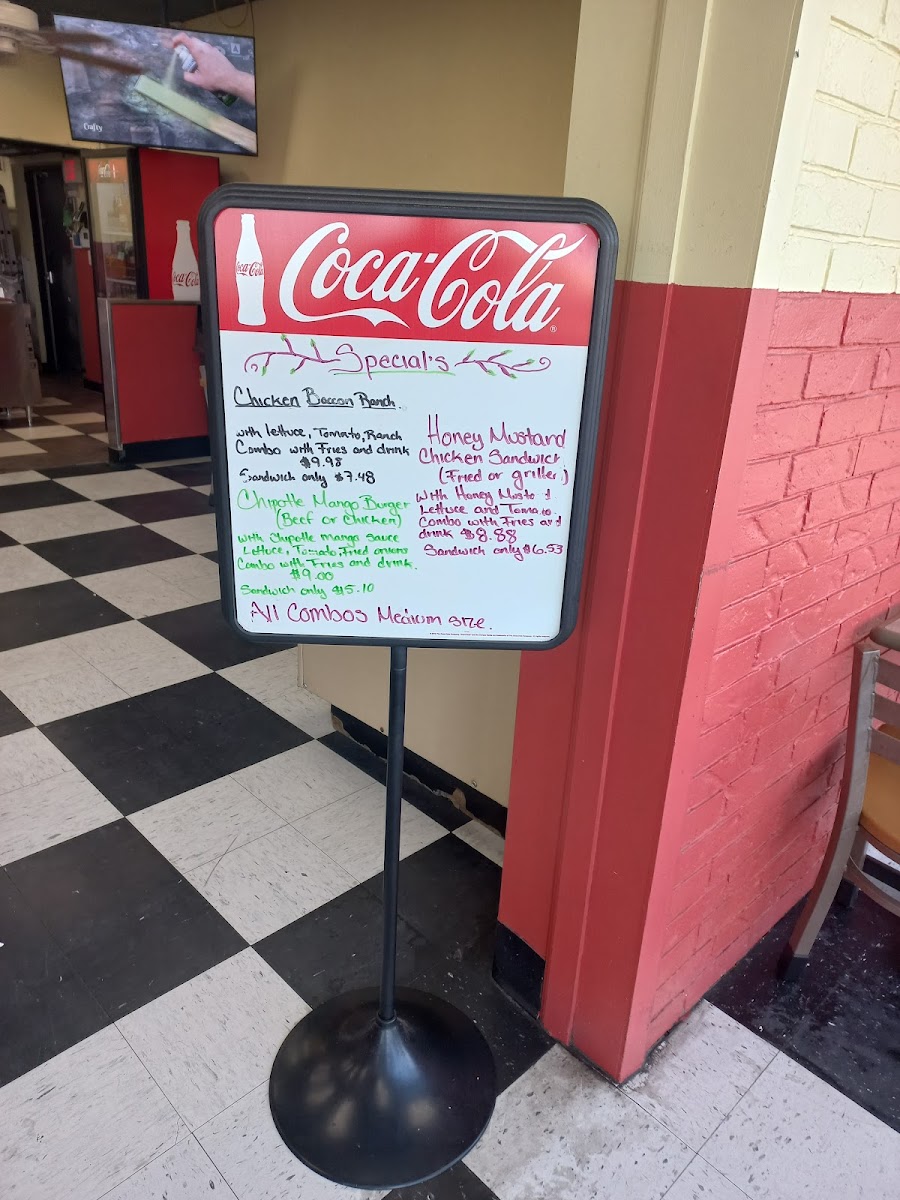 Crafty
Coca-Cola
Coca-Cola
Coca-Cola®
Special's
Chicken Bacon Ranch.
with lettuce, Tomato, Ranch
Combo with Fries and drink
$9.98
Sandwich only $7.48
Chipotle Mango Burger
(Beef or Chicken)
with Chipotle mango sauce
Lettuce, Tomato, Fried onions
Combo with Fries and drink.
$9.00
Sandwich only $5.10
Honey Mustard
Chicken Sandwich
(Fried or griller)
with Honey Musta d
Lettuce and Toma o.
Combo with Fries and
drink $8.88
Sandwich only $6.53
All Combos Medium size.